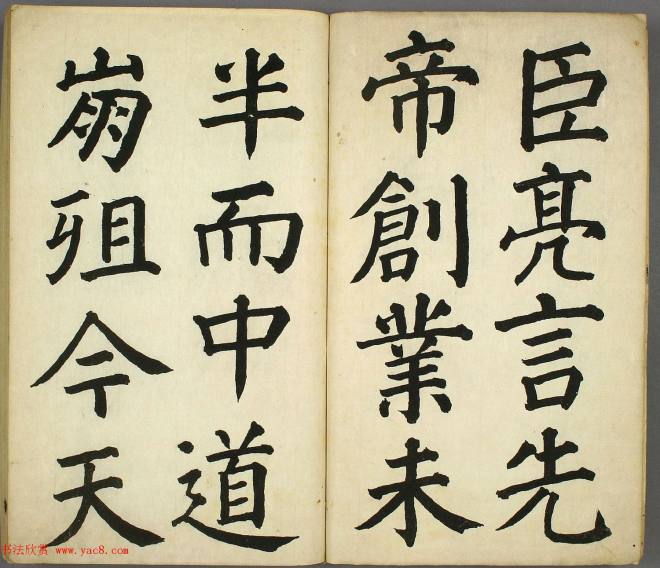 臣亮言先
帝創業未
半而中道
崩殂今天
书法欣赏 www.yac8.com